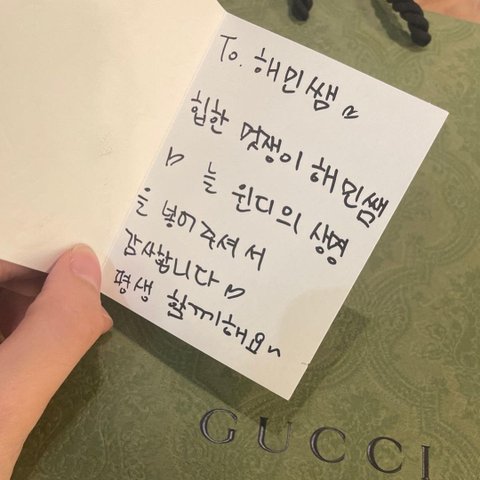 To. 해민쌤 ♡
힙한 멋쟁이 해민쌤
♡ 늘 윈디의 생명
을 불어주셔서
감사합니다 ♡
평생 함께해요~
GUCCI